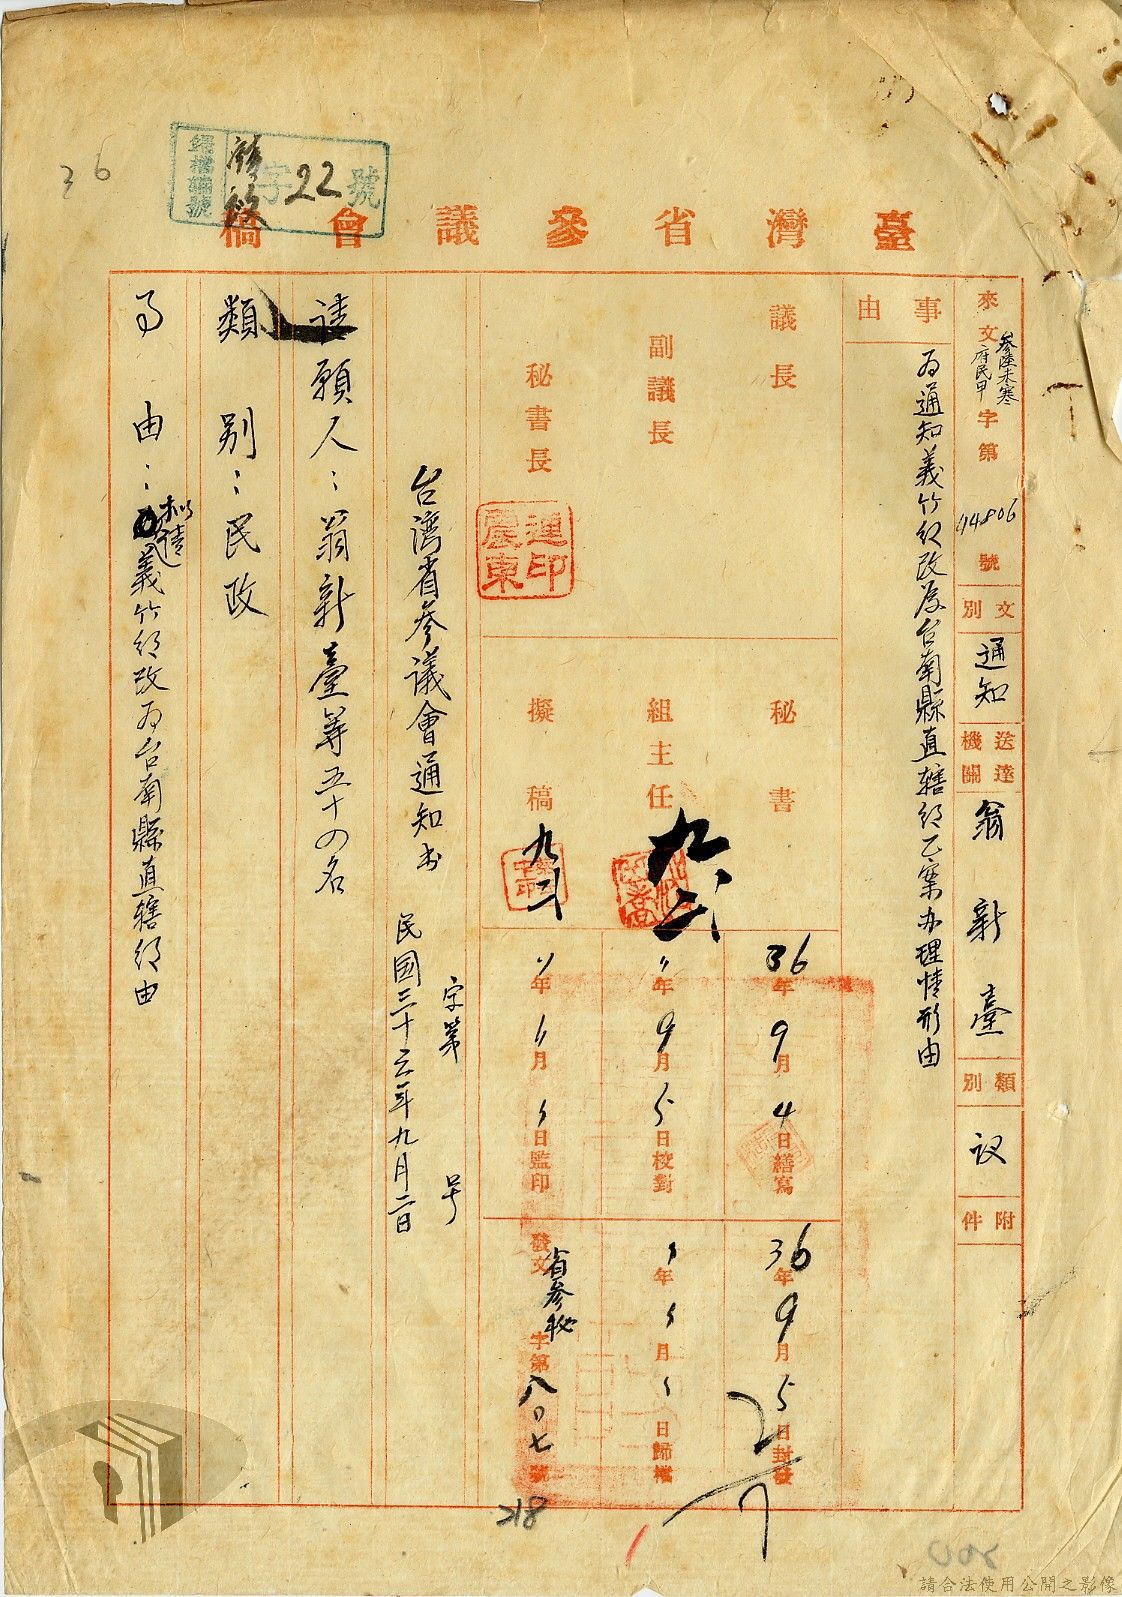 臺灣省參議會稿
歸檔編號
字22號
36
來文 參陸未寒 府民甲 字第 94806 號
文別 通知
送達機關 翁新臺
類別 議
附件
事由
為通知義竹鄉改為台南縣直轄鄉乙案办理情形由
議長
副議長
秘書長
連震東印
秘書
組主任 九、二
擬稿 九、二
36年9月4日繕寫
〃年9月5日校對
〃年〃月〃日監印
36年9月5日封發
〃年〃月〃日歸檔
發文 省參秘 字第八〇七號
218
台湾省参議會通知书
字第 号
民國三十六年九月二日
請願人：翁新臺等五十四名
類別：民政
事由：擬請義竹鄉改為台南縣直轄鄉由
請合法使用公開之影像